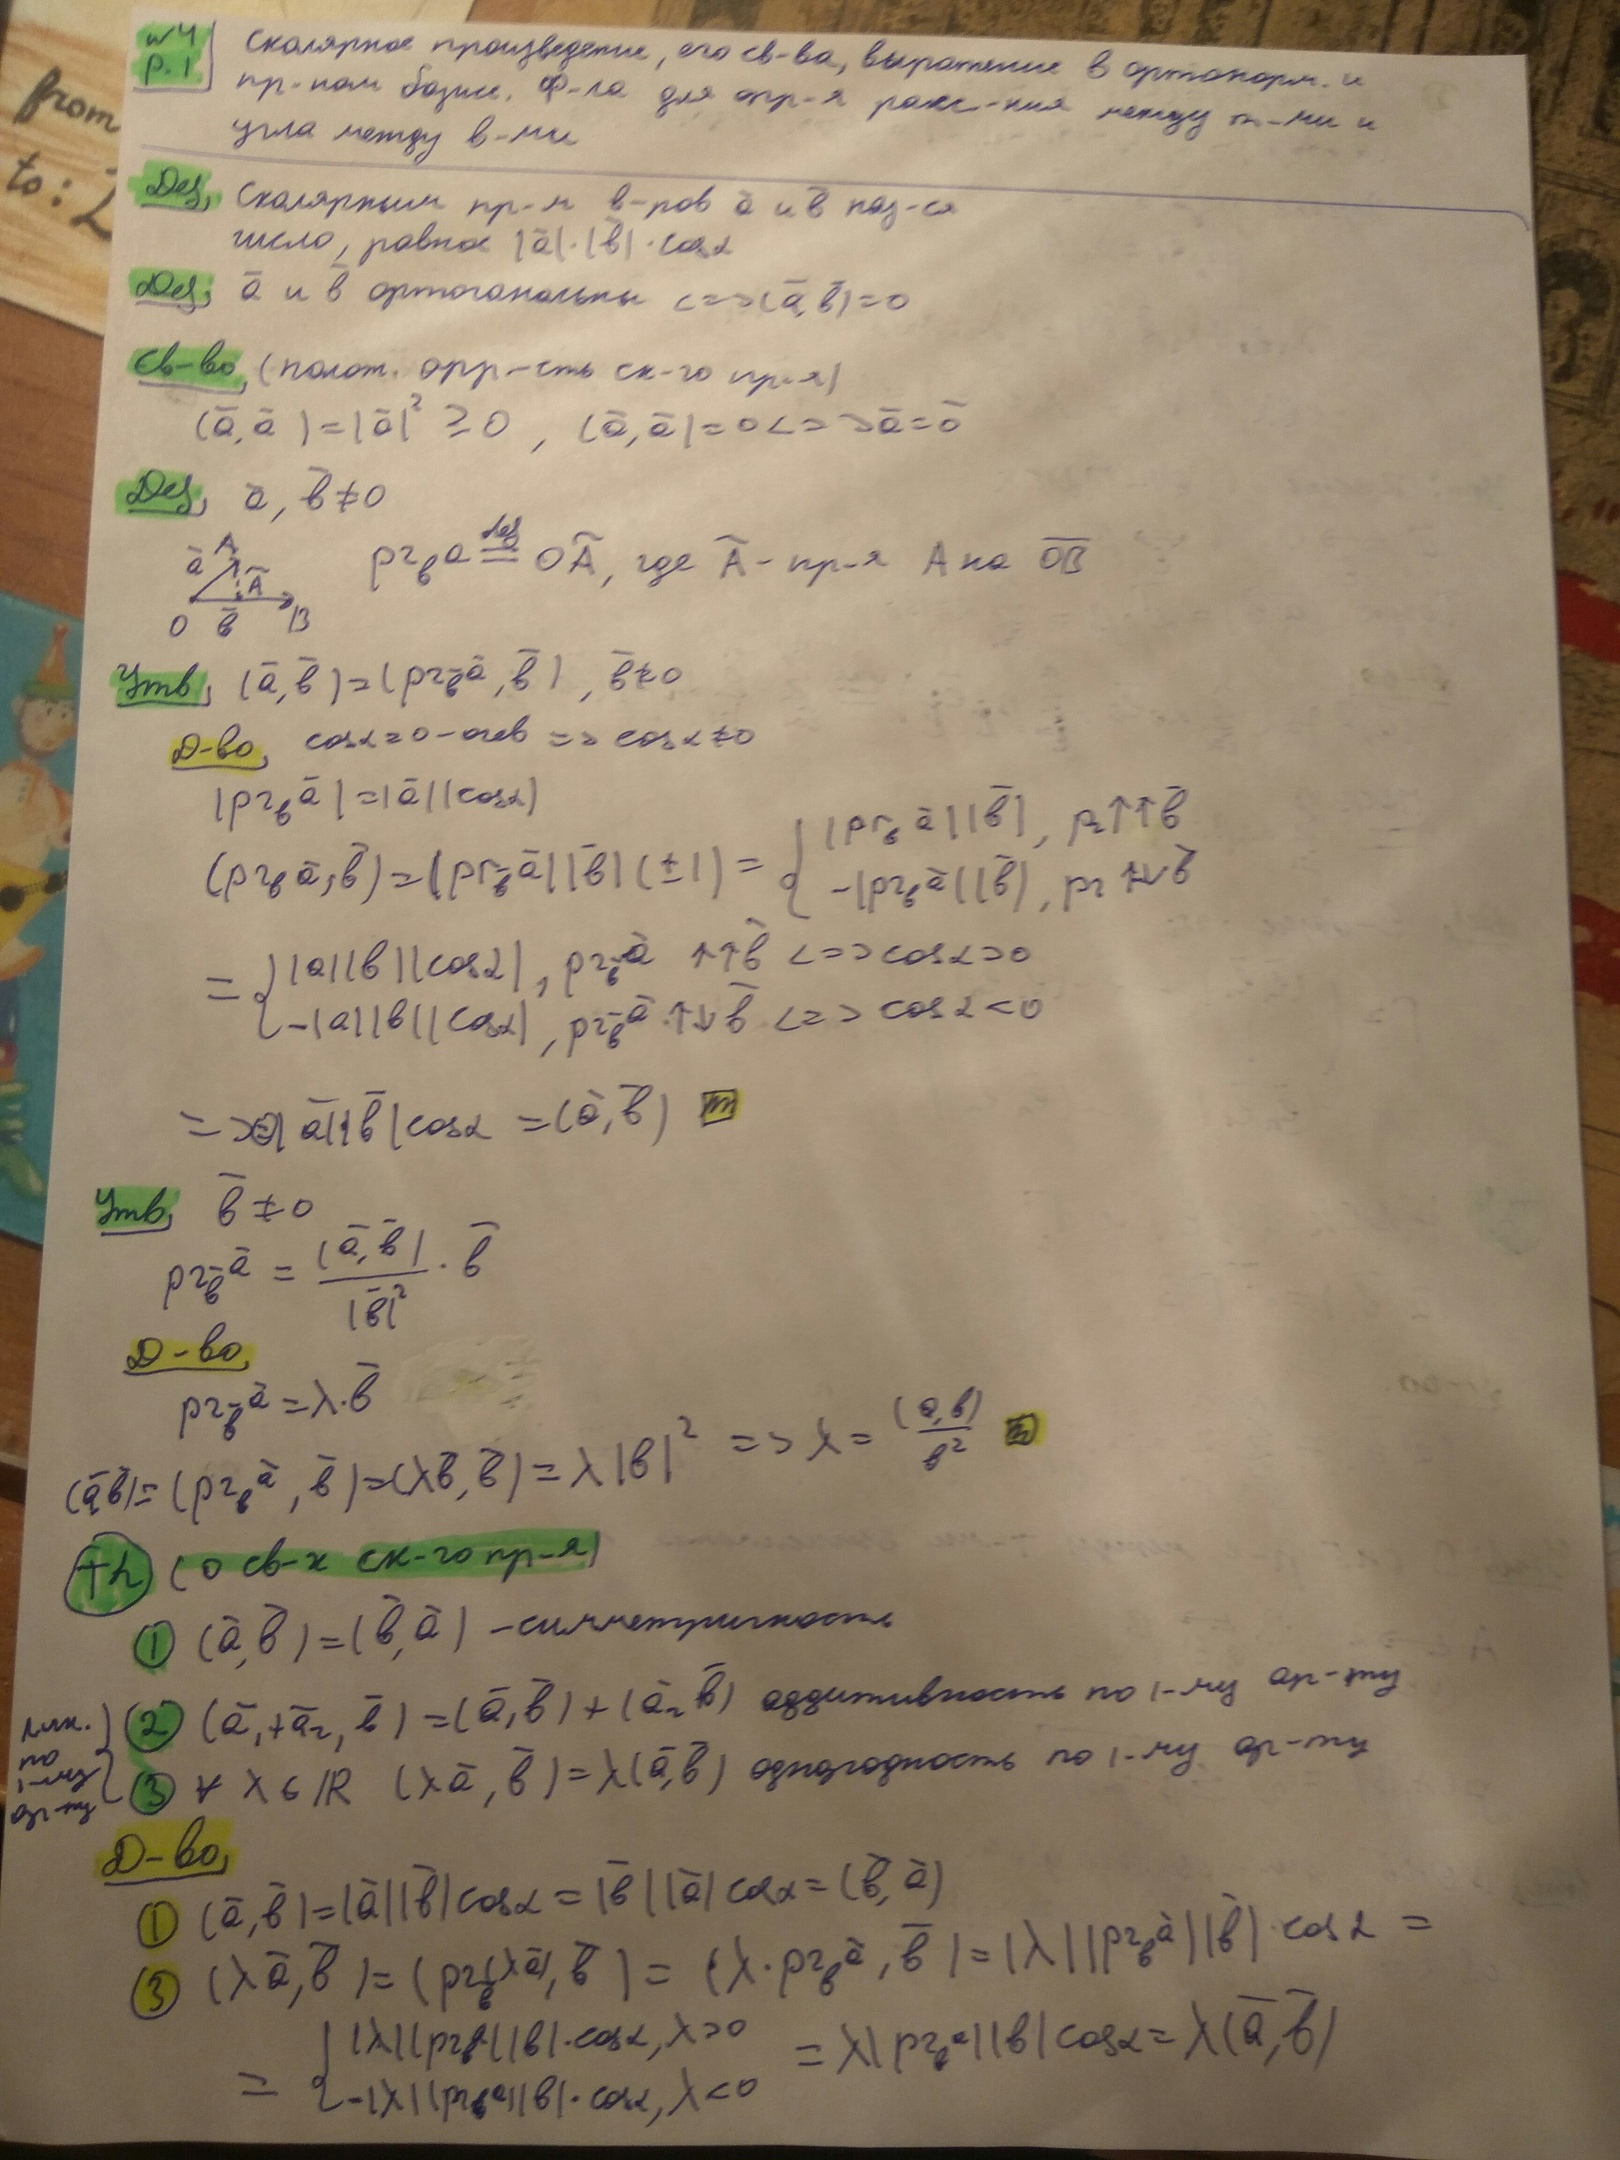 №4
р.1
Скалярное произведение, его св-ва, выражение в ортонорм. и
пр-ном базисе. Ф-ла для опр-я расс-ния между т-ми и
угла между в-ми
from
to: 2
Def, Скалярным пр-м в-ров ā и b̄ наз-ся
число, равное |ā|·|b̄|·cosα
Def, ā и b̄ ортогональны <=>(ā,b̄)=0
Св-во, (полож. опр-сть ск-го пр-я)
(ā,ā)=|ā|² ≥0 , (ā,ā)=0<=>ā=ō
Def, ā, b̄≠0
ā A Ã
O b̄ B
pr_b a ≝ OÃ, где Ã - пр-я A на O̅B̅
Утв, (ā,b̄)=(pr_b̄ ā,b̄), b̄≠0
Д-во, cosα=0-очев => cosα≠0
|pr_b ā|=|ā||cosα|
(pr_b ā,b̄)=|pr_b̄ ā||b̄|(±1)= { |pr_b ā||b̄|, pr↑↑b̄
-|pr_b ā||b̄|, pr ↑↓b̄
= { |a||b||cosα|, pr_b̄ ā ↑↑b̄ <=>cosα>0
-|a||b||cosα|, pr_b̄ ā ↑↓b̄ <=> cosα<0
=> |ā||b̄|cosα =(ā,b̄)
Утв, b̄≠0
pr_b̄ ā = (ā,b̄)/|b̄|² · b̄
Д-во,
pr_b̄ ā =λ·b̄
(ā,b̄)=(pr_b ā,b̄)=(λb̄,b̄)=λ|b|² => λ= (a,b)/b²
Th (о св-х ск-го пр-я)
① (ā,b̄)=(b̄,ā) -симметричность
② (ā₁+ā₂,b̄)=(ā,b̄)+(ā₂b̄) аддитивность по 1-му ар-ту
лин.
по
1-му
ар-ту
③ ∀ λ∈ℝ (λā,b̄)=λ(ā,b̄) однородность по 1-му ар-ту
Д-во,
① (ā,b̄)=|ā||b̄|cosα=|b̄||ā|cosα=(b̄,ā)
③ (λā,b̄)=(pr_b(λā),b̄)= (λ·pr_b ā,b̄)=|λ||pr_b ā||b̄|·cosα =
= { |λ||pr_b a||b|·cosα, λ>0
-|λ||pr_b a||b|·cosα, λ<0
=λ|pr_b a||b|cosα=λ(ā,b̄)